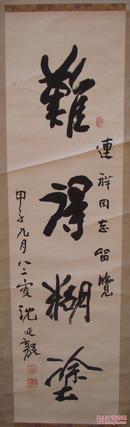 難得糊塗
連祥同志留覽
甲子九月八二叟沈延毅